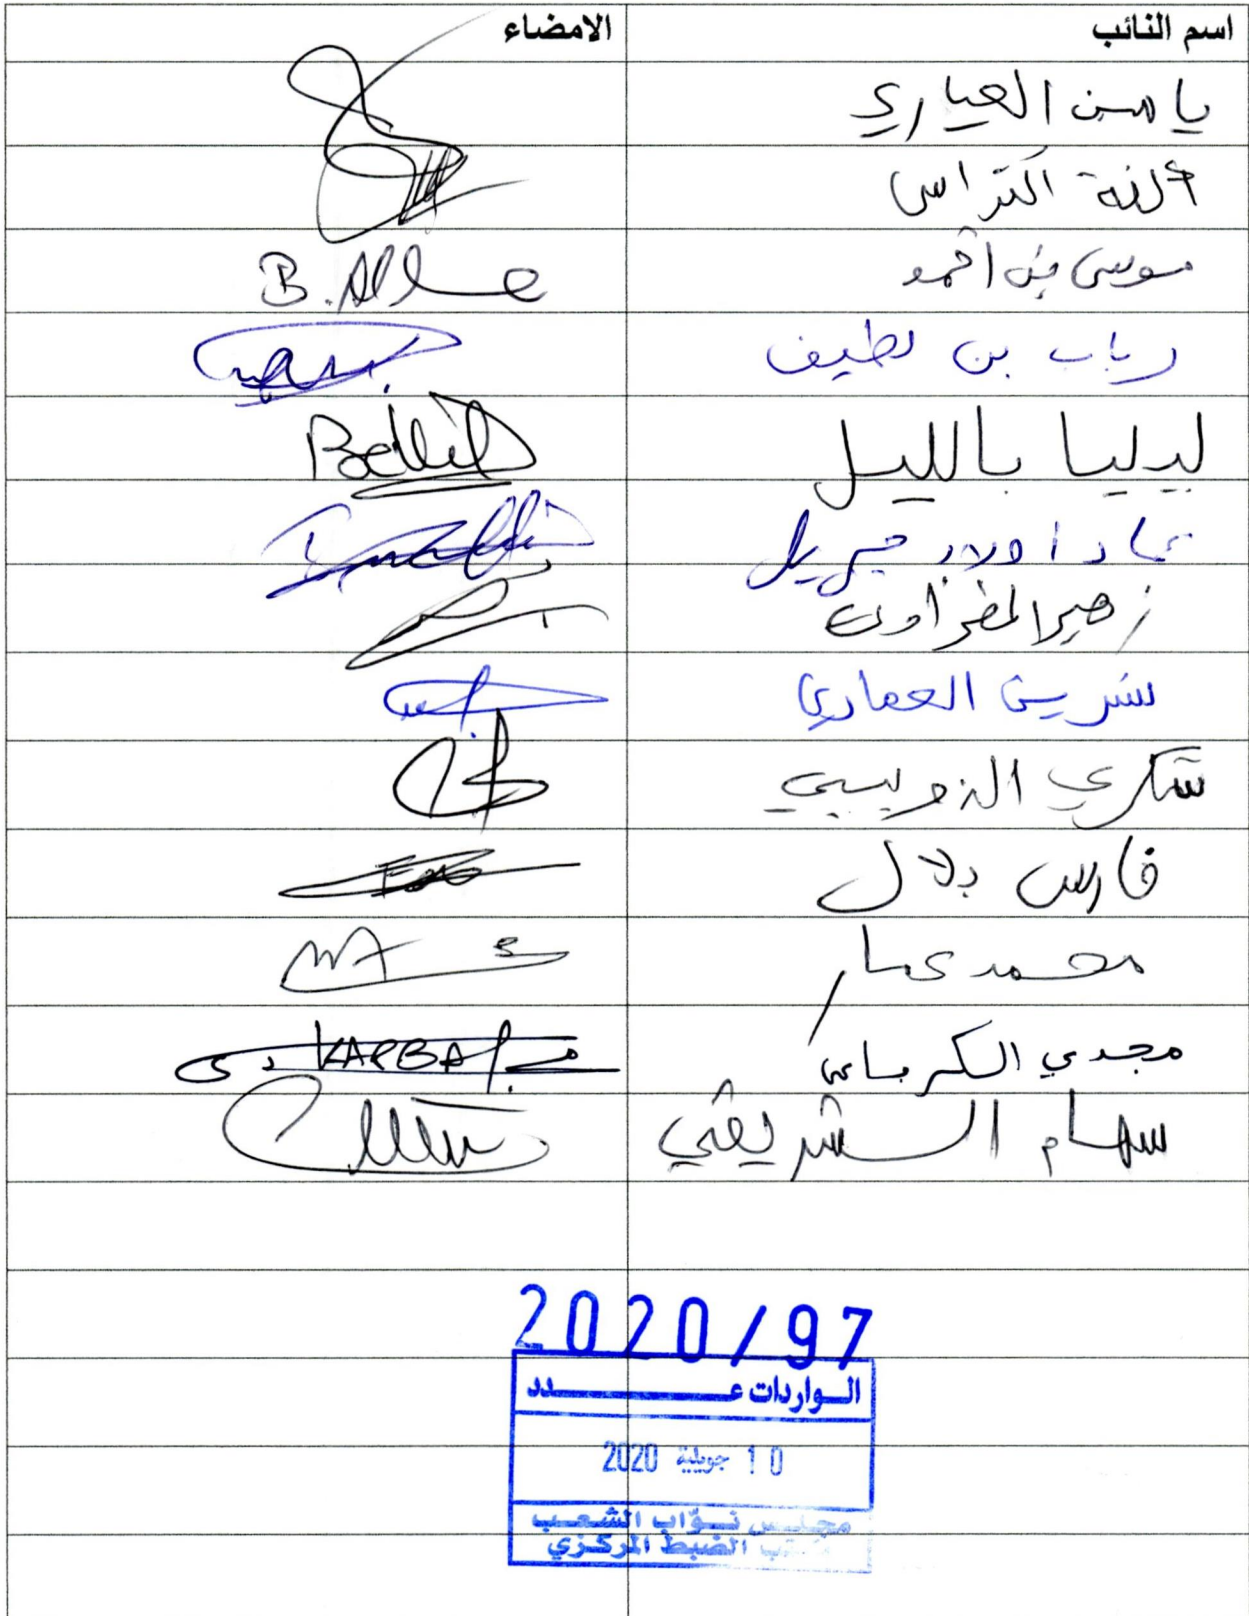 اسم النائب الامضاء
ياسين العياري
آمنة
موسى بن احمد
B.
رباب بن لطيف
ليليا بالليل
Bellil
عماد اولاد جبريل
زهير المغزاوي
نسرين العماري
شكري الذويبي
فارس بلال
محمد عمار
مجدي الكرباعي
KARBA
سهام الشريقي
2020/97
الـواردات عــــــدد
10 جويلية 2020
مجلـس نـوّاب الشعـب
مكتب الضبط المركـزي